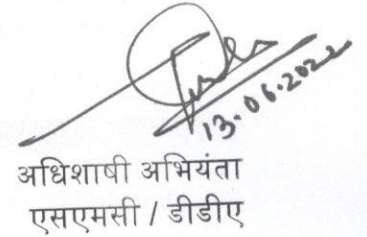 13.06.2022
अधिशाषी अभियंता
एसएमसी / डीडीए